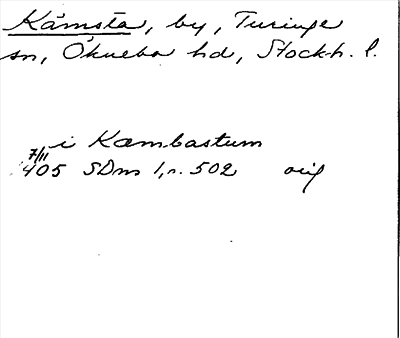 Kämsta, by, Turinge
sn, Öknebo hd, Stockh. l.
i Kæmbastum
7/11
1405 SDns 1, n. 502 orig